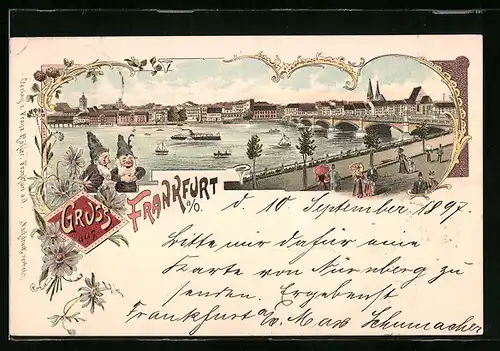 GRUSS
aus
FRANKFURT
a/O.
d. 10 September 1897.
Bitte mir dafür eine
Karte von Nürnberg zu
senden. Ergebenst
Frankfurt a/O. Max Schumacher